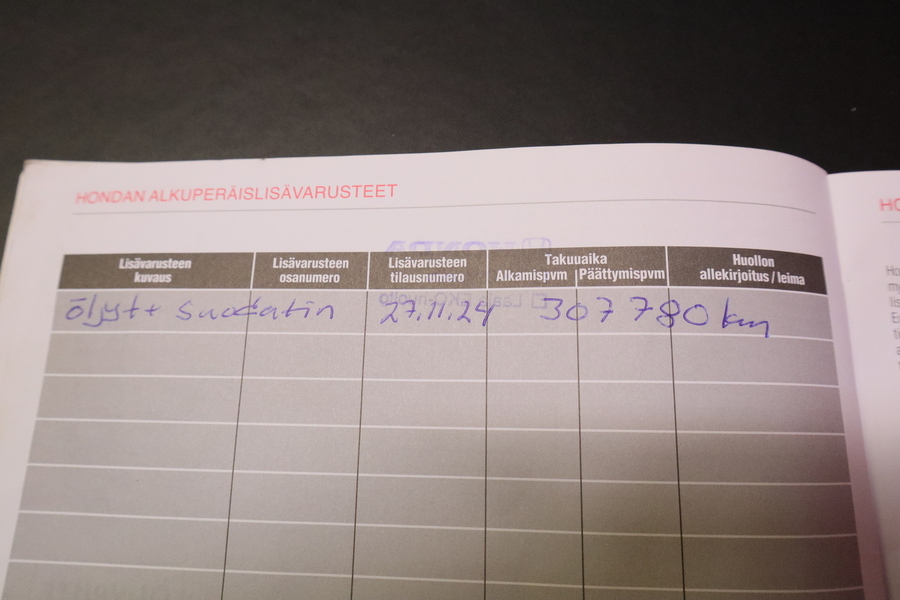 HONDAN ALKUPERÄISLISÄVARUSTEET
Lisävarusteen kuvaus
Lisävarusteen osanumero
Lisävarusteen tilausnumero
Takuuaika
Alkamispvm Päättymispvm
Huollon allekirjoitus / leima
öljyt + suodatin 27.11.24 307 780 km